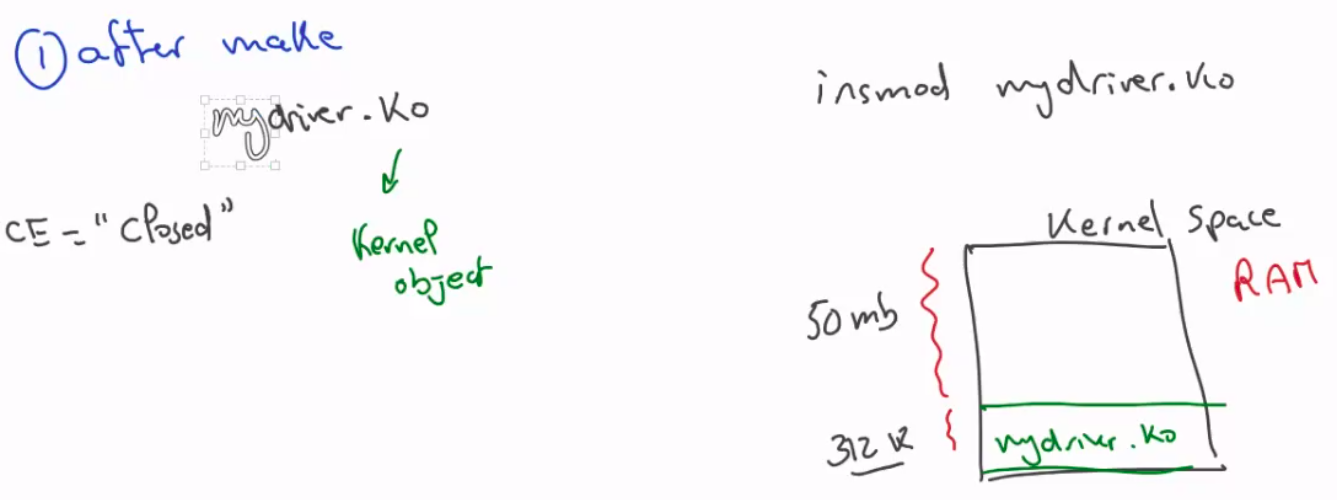 ① after make
mydriver.Ko
CE = "Closed"
Kernel
object
insmod mydriver.Ko
Kernel Space
RAM
50 mb
312 K
mydriver.Ko